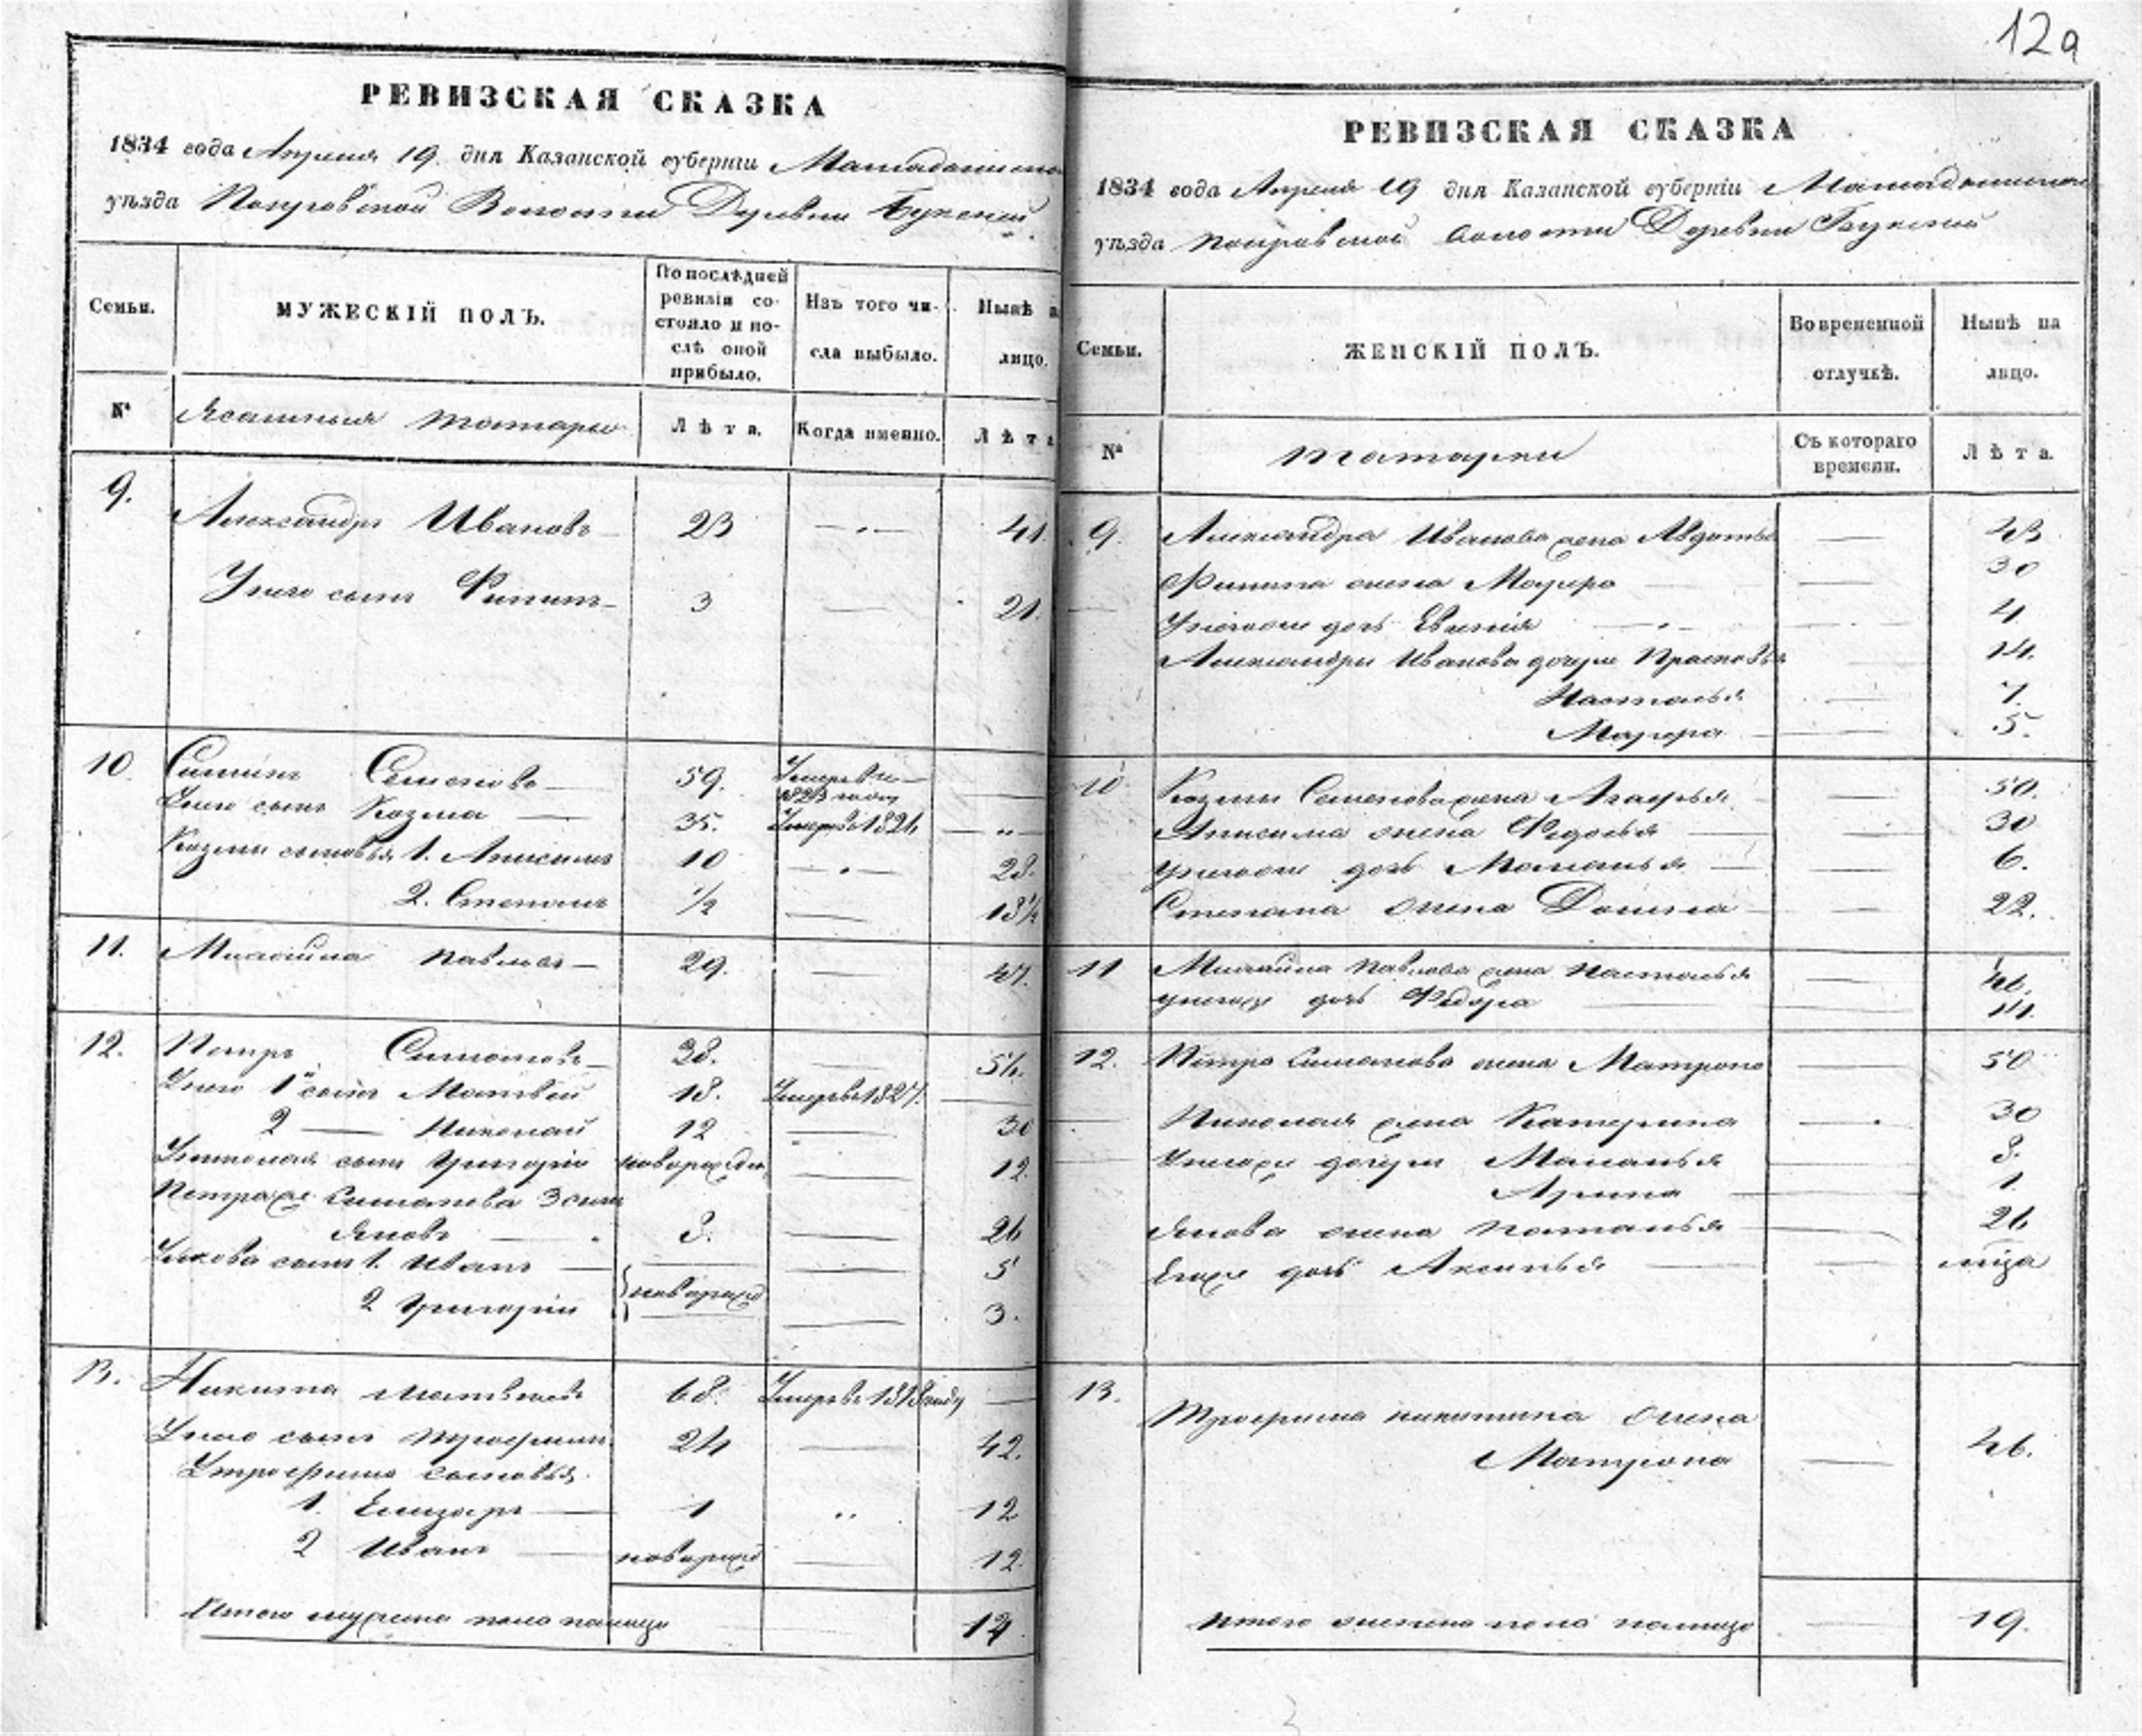 12а
РЕВИЗСКАЯ СКАЗКА
1834 года Апреля 19. дня Казанской губернiи Мамадышска
уѣзда Покровской Волости Деревни Букеней
Семьи.
МУЖЕСКIЙ ПОЛЪ.
По послѣдней ревизiи состояло и послѣ оной прибыло.
Изъ того числа выбыло.
Нынѣ н лицо.
№
Ясашныя татары
Лѣта.
Когда именно.
Лѣта
9. Александръ Ивановъ 23 41
Унего сынъ Филипъ 3 21.
10. Семеновъ 59. Умеръ 1823 году
Унего сынъ Козма 35. Умеръ 1826
Козмы сыновья 1. Анисимъ 10 28.
2. Степанъ 1/2 18 1/2
11. Михайла Павловъ 29. 47.
12. Петръ Симоновъ 38. 56.
Унего 1й сынъ Матвей 18. Умеръ в 1827.
2 Николай 12 30
Униколая сынъ Григорiй новорожден 12.
Петра же Симонова 3 сынъ
Яковъ 8. 26
Уякова сынъ 1. Иванъ 5
2 Григорiй новорожд 3.
13. Никита Матвеевъ 68. Умеръ в 1818 году
Унего сынъ Трофимъ 24 42.
Утрофима сыновья
1. Елизаръ 1 12
2 Иванъ новорожд 12.
Итого мужеска пола налицо 14
РЕВИЗСКАЯ СКАЗКА
1834 года Апреля 19 дня Казанской губернiи Мамадышска
уѣзда Покровской волости Деревни Букеней
Семьи.
ЖЕНСКIЙ ПОЛЪ.
Во временной отлучкѣ.
Нынѣ на лицо.
№
татарки
Съ котораго времени.
Лѣта.
9. Александра Иванова жена Авдотья 43
Филипа жена Мавра 30
Унихже дочь Евгенiя 4
Александры Иванова дочери Прасковья 14.
Настасья 7.
Мавра 5.
10 Козмы Семенова жена Агафья 50.
Анисима жена Федосья 30
Унихже дочь Маланья 6.
Степана жена Домна 22.
11 Михайла Павлова жена Настасья 46.
унихже дочь Федора 14.
12. Петра Симонова жена Матрона 50
Николая жена Катерина 30
Унихже дочери Маланья 8.
Арина 1.
Якова жена Наталья 26
Ихже дочь Аксинья
13. Трофима Никитина жена
Матрона 46.
Итого женска пола налицо 19.